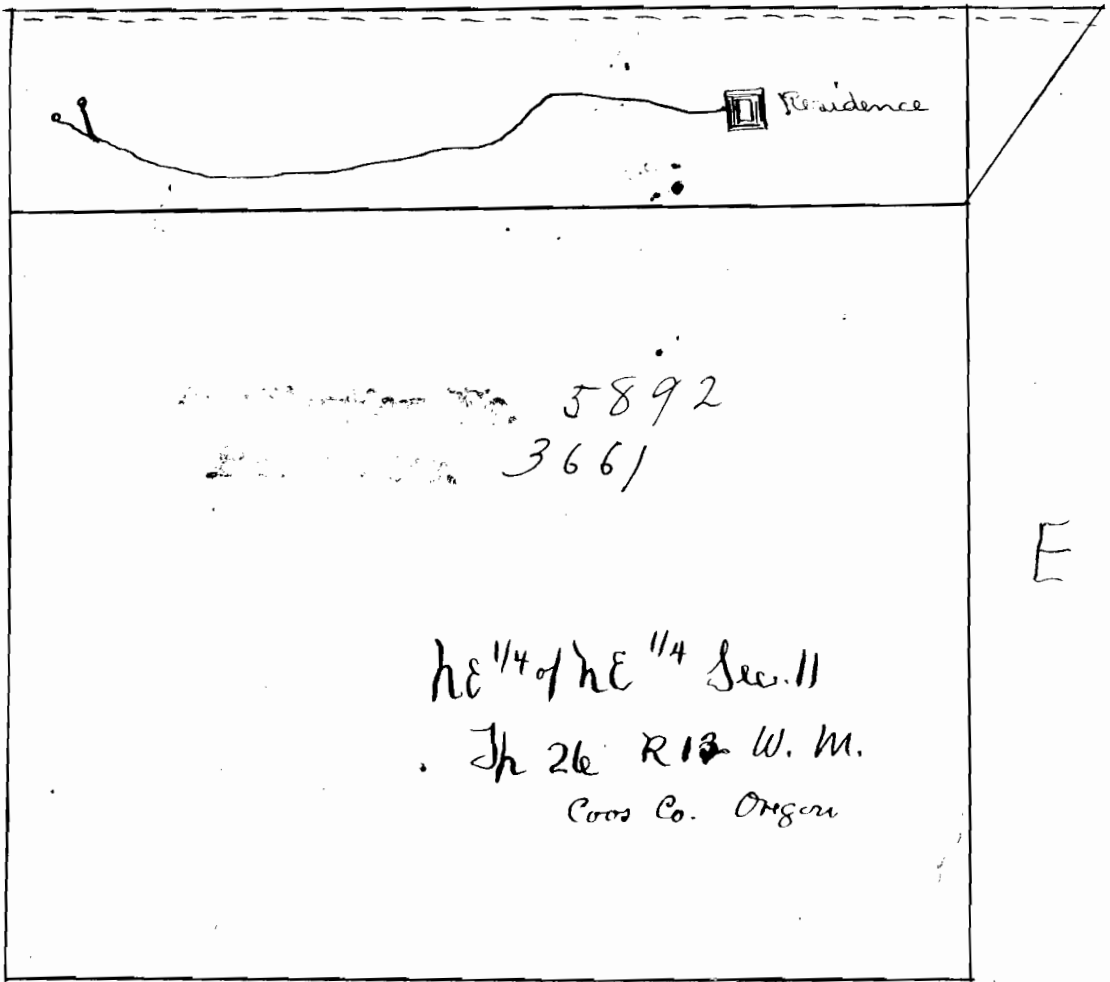 Residence
5892
3661
E
NE 1/4 of NE 1/4 Sec. 11
Tp 26 R W. M.
Coos Co. Oregon